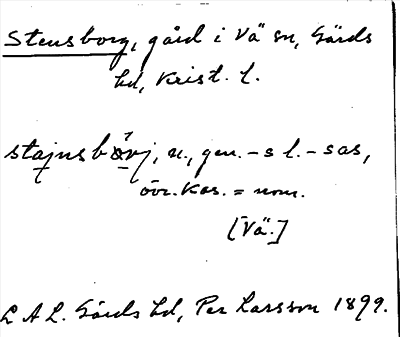 Stensborg, gård i Vä sn, Gärds
hd, Krist. l.
stajnsbɔrj, n., gen. -s l. -sas,
övr. kas. = nom.
[Vä.]
L A L. Gärds hd, Per Larsson 1899.